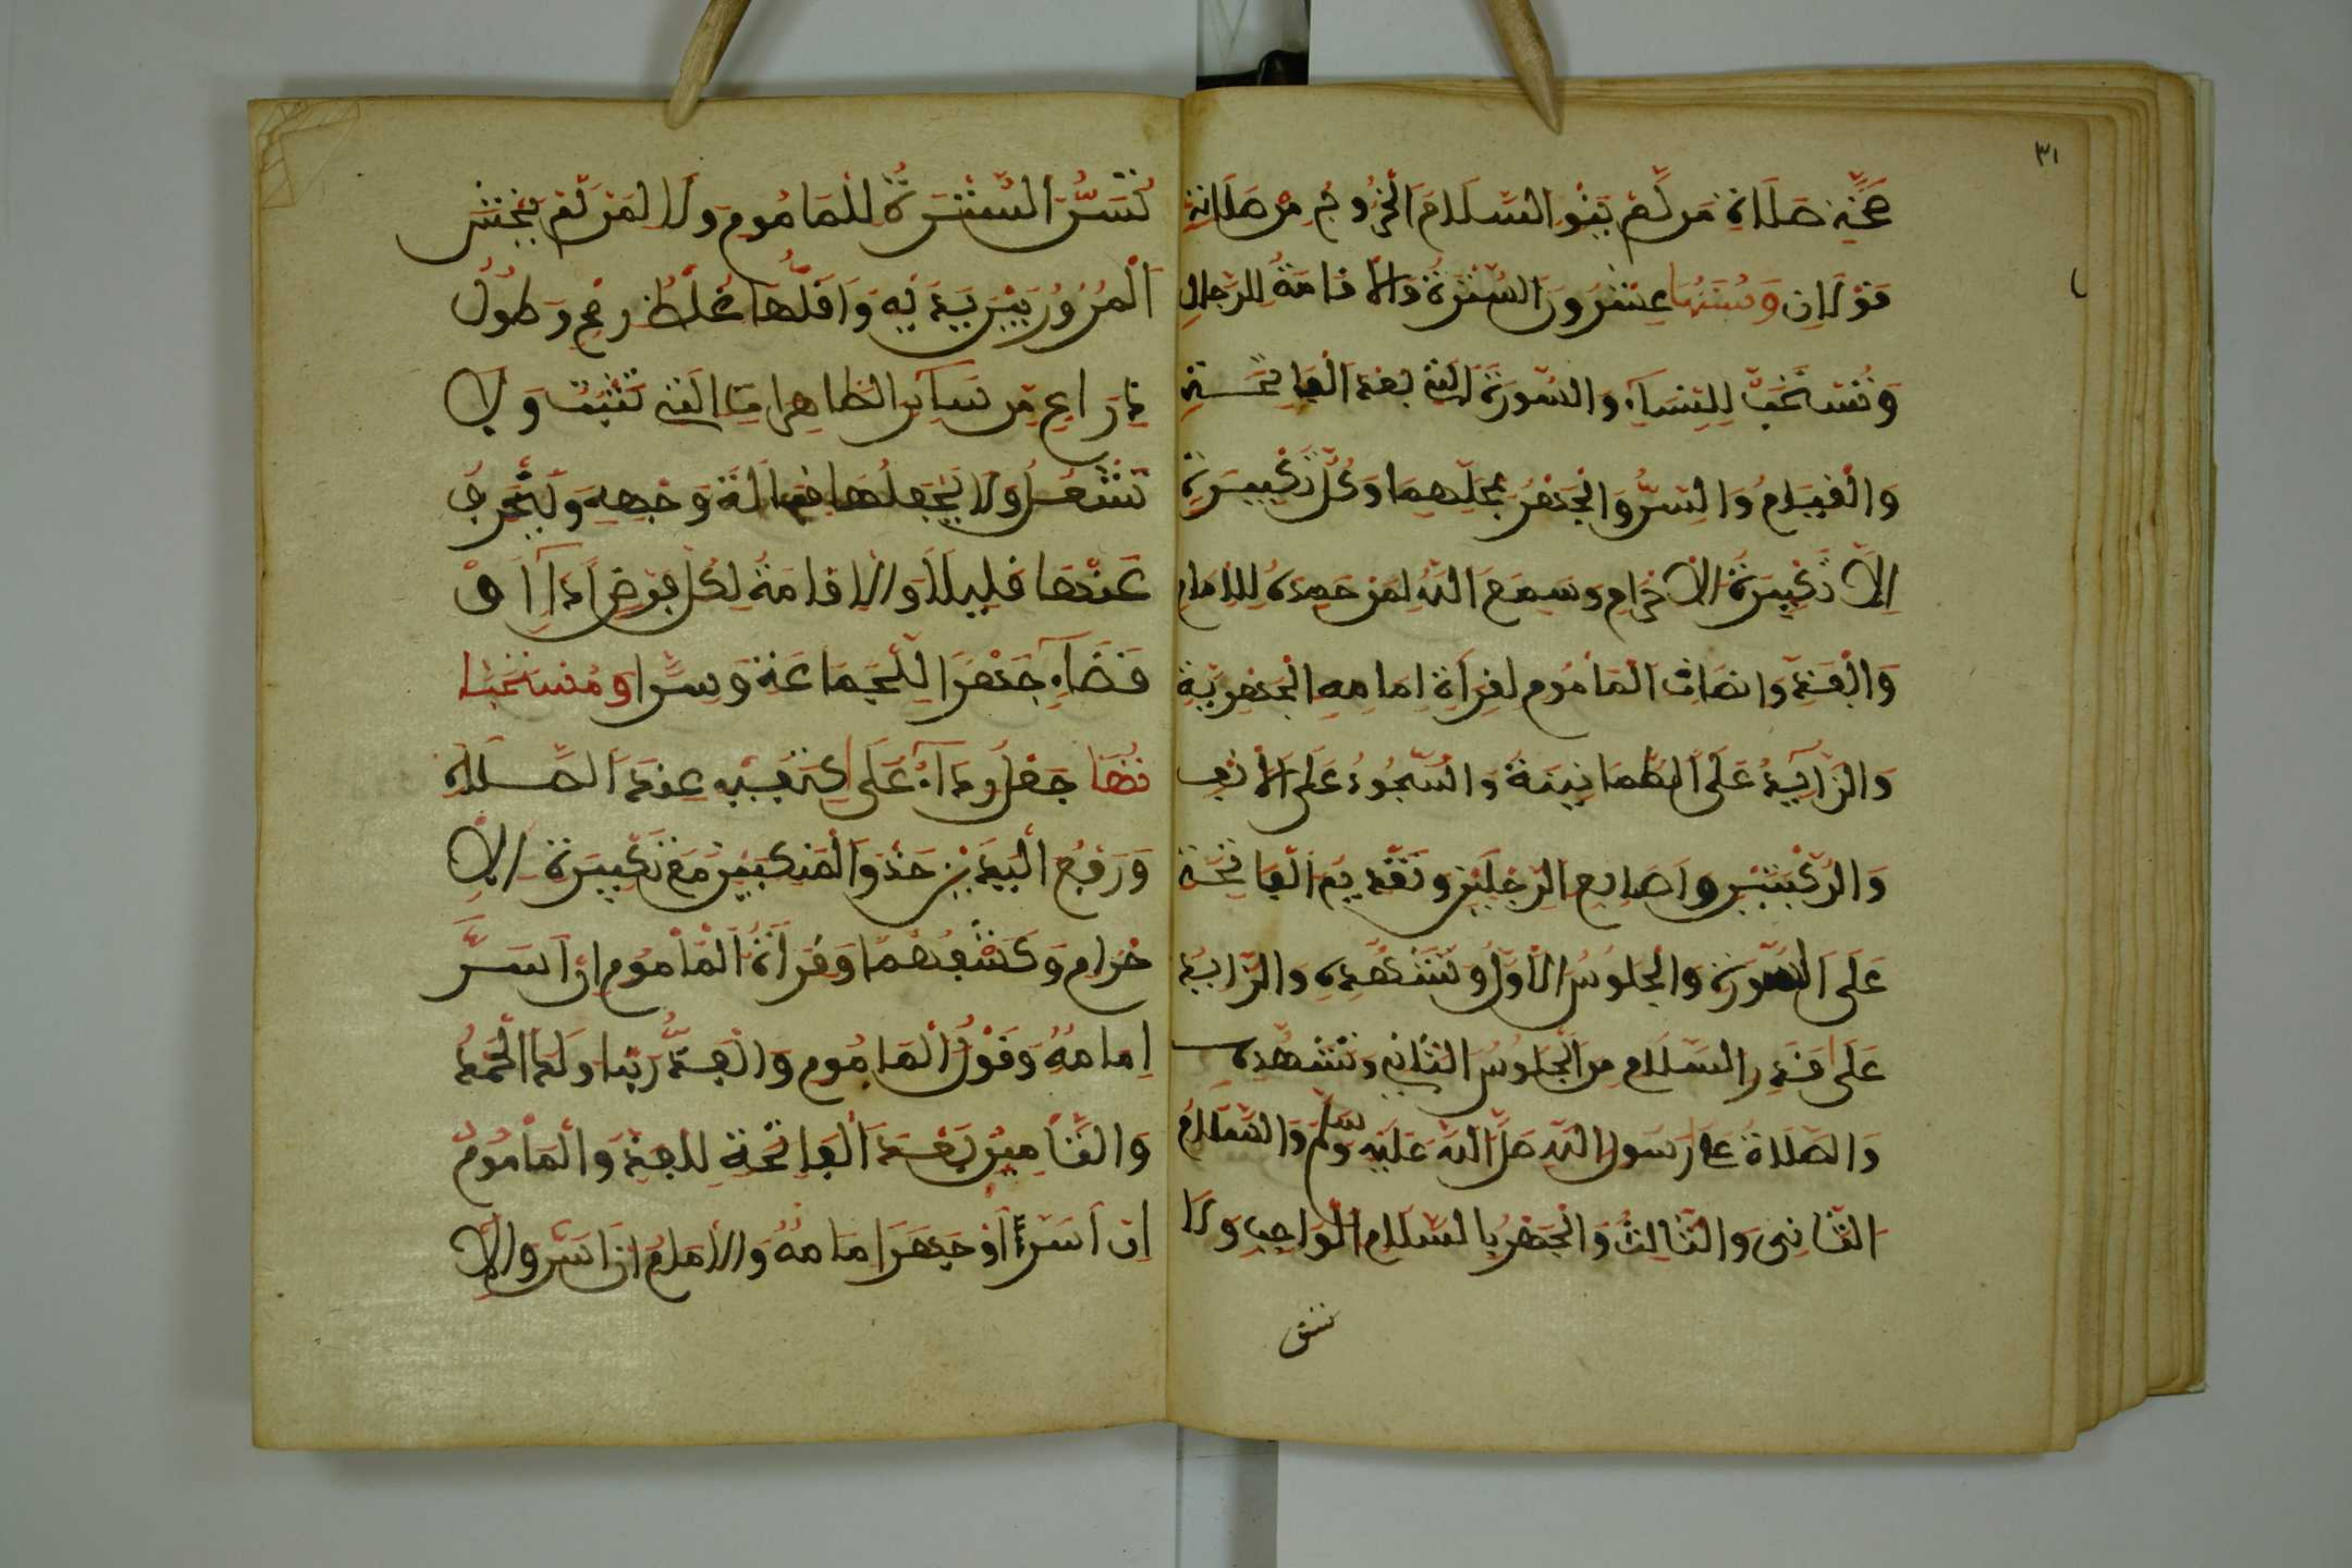 ٣١
صحة صلاة من لم ينو السلام الخروج من صلاته
قولان وسننها عشرون السترة والاقامة للرجال
وتستحب للنساء والسورة التى بعد الفاتحة
والقيام والسر والجهر بمحلهما وكل تكبيرة
الا تكبيرة الاحرام وسمع الله لمن حمده للامام
والفذ وانصات المأموم لقرأة امامه الجهرية
والزائد على الطمانينة والسجود على الانف
والركبتين واصابع الرجلين وتقديم الفاتحة
على السورة والجلوس الاول وتشهده والزايد
على قدر السلام من الجلوس الثانى وتشهده
والصلاة على رسول الله صلى الله عليه وسلم والسلام
الثانى والثالث والجهر بالسلام الواجب ولا
تسن
تسن السترة للمأموم ولا لمن لم يخش
المرور بين يديه واقلها غلظ رمح وطول
ذراع من سائر الظاهرات التى تثبت ولا
تشغل ولا يجعلها قبالة وجهه ولينحرف
عنها قليلا والاقامة لكل فرض اداء او
قضاء جهرا للجماعة وسرا ومستحبا
تها جعل رداء على كتفيه عند الصلاة
ورفع اليدين حذو المنكبين مع تكبيرة الا
حرام وكشفهما وقرأة المأموم ان اسر
امامه وقول المأموم والفذ ربنا ولك الحمد
والتأمين بعد الفاتحة للفذ والمأموم
ان اسر أو جهر امامه والامام ان اسر والا